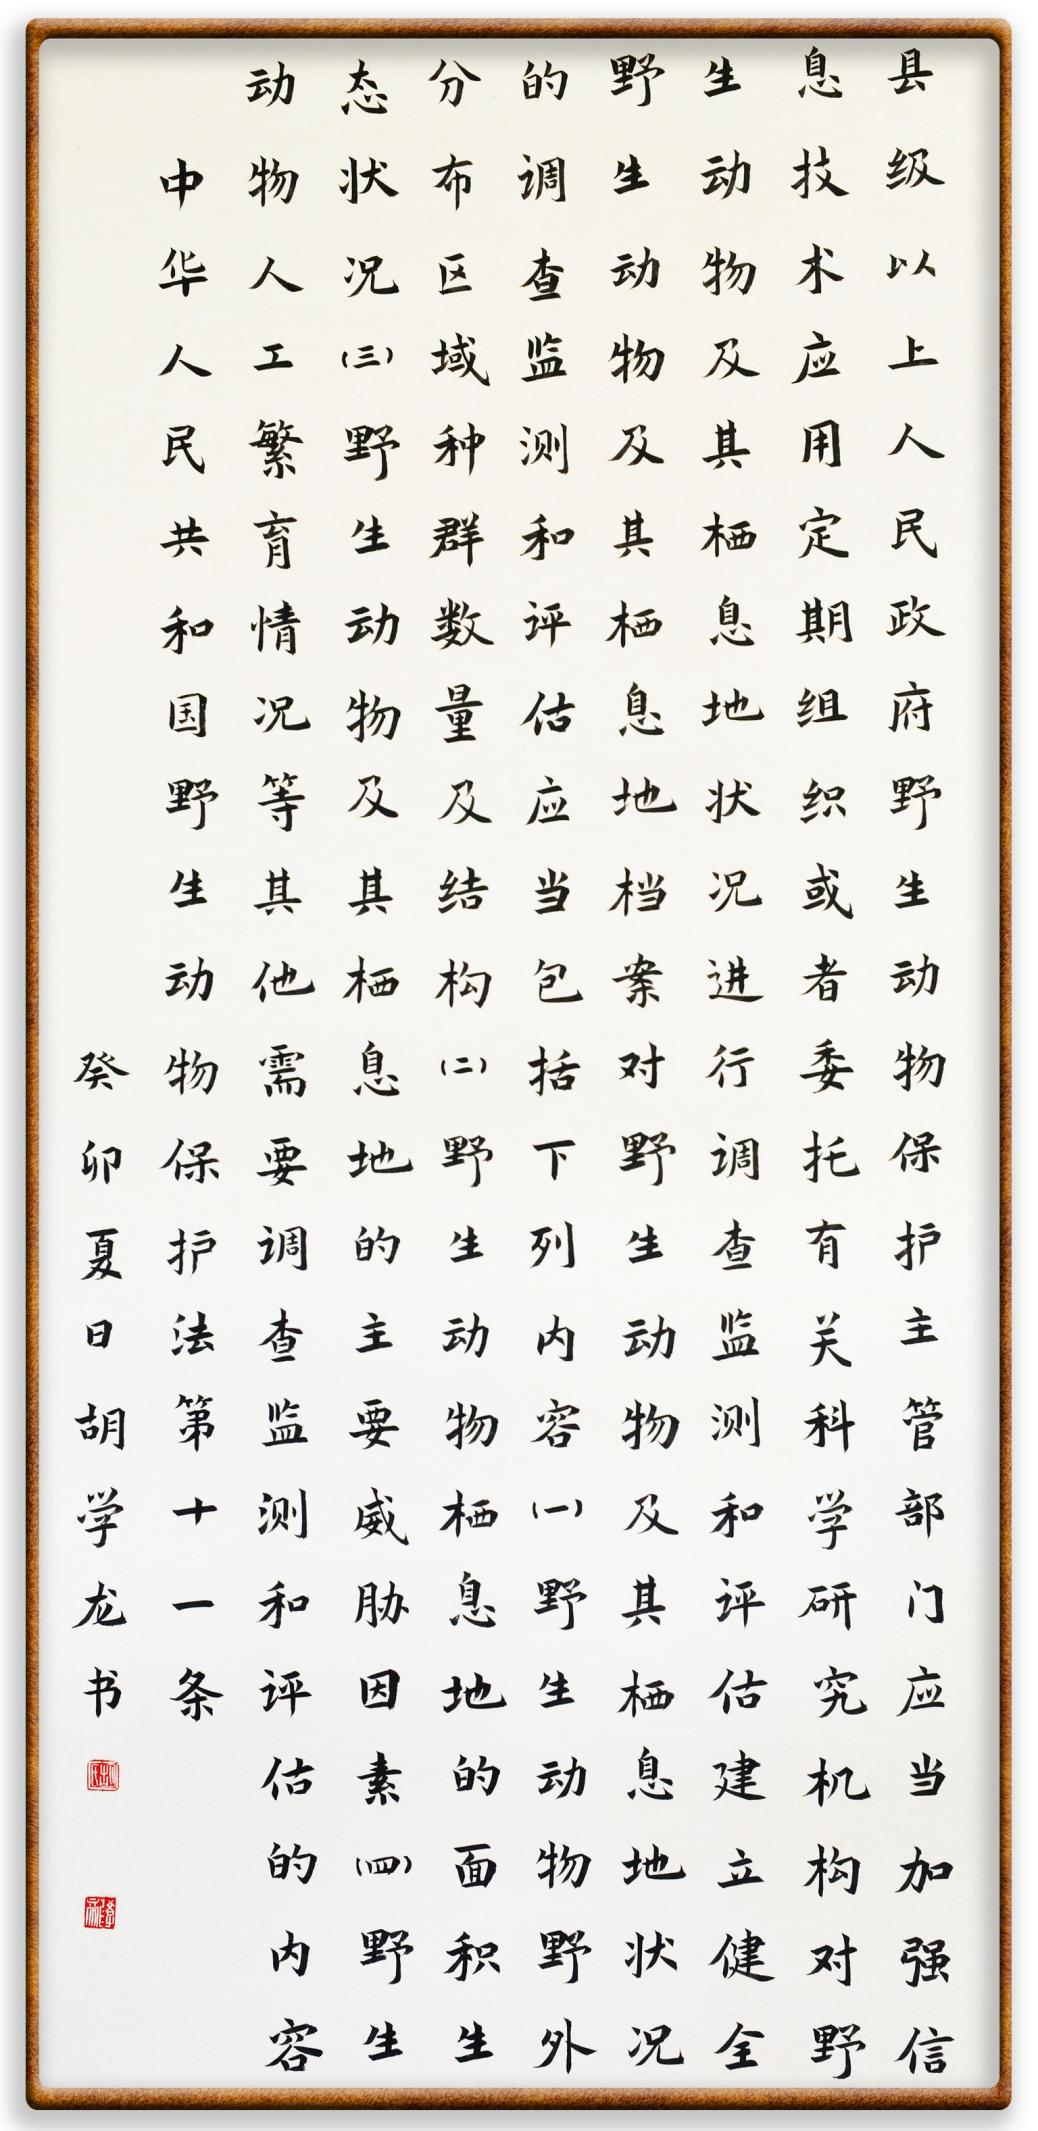 县级以上人民政府野生动物保护主管部门应当加强信
息技术应用定期组织或者委托有关科学研究机构对野
生动物及其栖息地状况进行调查监测和评估建立健全
野生动物及其栖息地档案对野生动物及其栖息地状况
的调查监测和评估应当包括下列内容(一)野生动物野外
分布区域种群数量及结构(二)野生动物栖息地的面积生
态状况(三)野生动物及其栖息地的主要威胁因素(四)野生
动物人工繁育情况等其他需要调查监测和评估的内容
中华人民共和国野生动物保护法第十一条
癸卯夏日胡学龙书